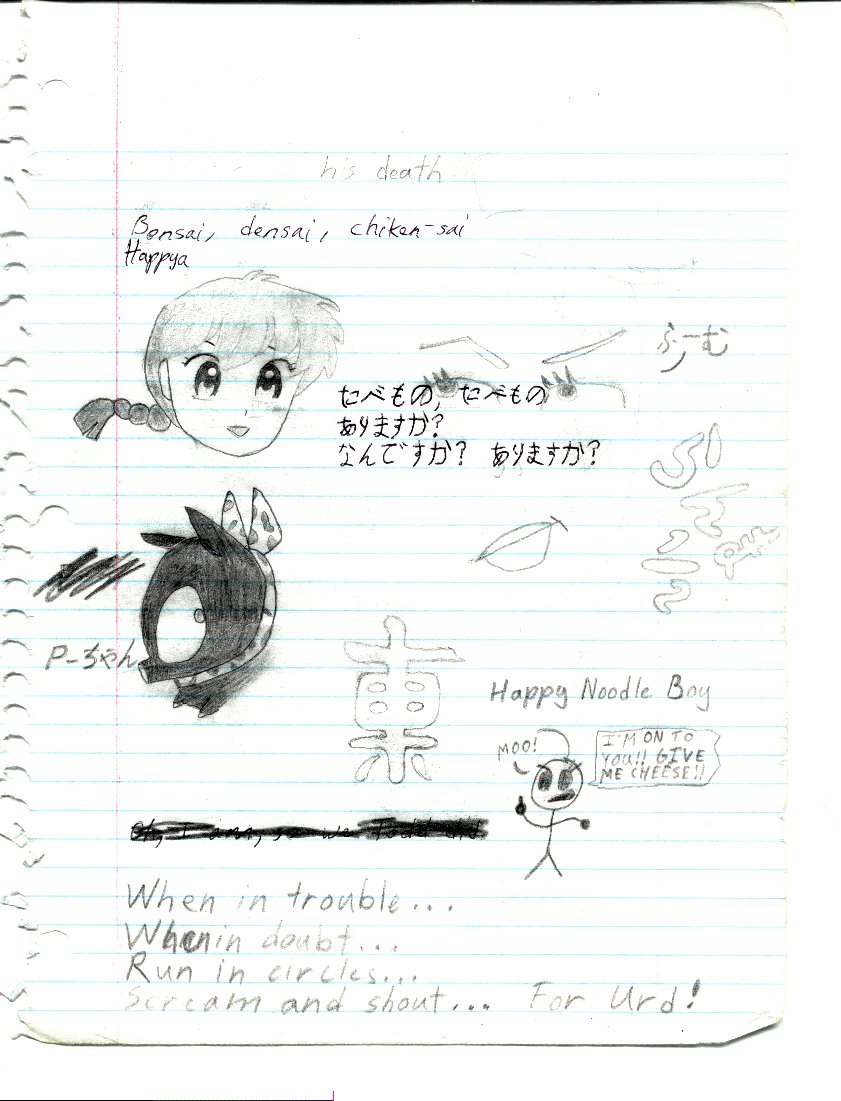 his death
Bonsai, densai, chiken-sai
Happya
ふーむ
たべもの, たべもの
ありますか?
なんですか? ありますか?
P-ちゃん
Happy Noodle Boy
MOO!
I'M ON TO
YOU!! GIVE
ME CHEESE!!
When in trouble...
When in doubt...
Run in circles...
Scream and shout... For Urd!